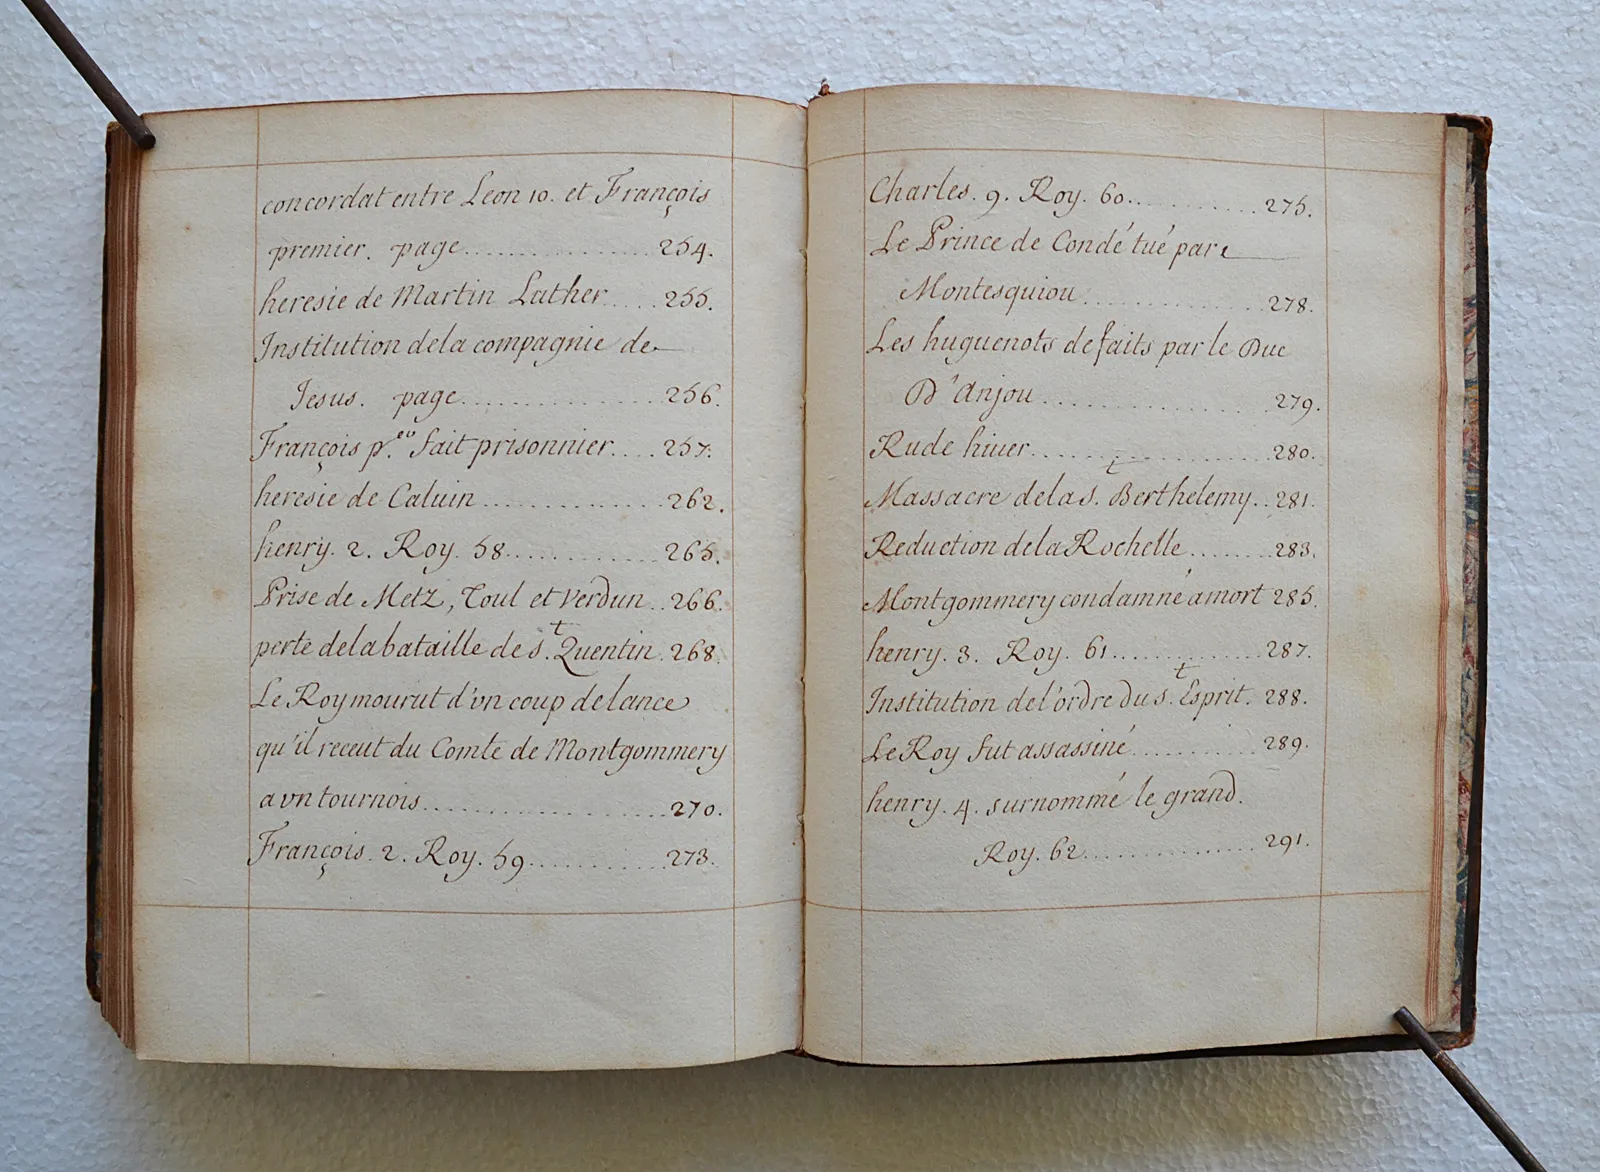 concordat entre Leon 10. et François
premier. page.................254.
heresie de Martin Luther....255.
Institution de la compagnie de
Jesus. page..................256.
François p.er fait prisonnier....257.
heresie de Caluin................262.
henry. 2. Roy. 58..............265.
Prise de Metz, Toul et Verdun..266.
perte de la bataille de s.t Quentin.268.
Le Roy mourut d'vn coup de lance
qu'il receut du Comte de Montgommery
a vn tournois......................270.
François. 2. Roy. 59.............273.
Charles. 9. Roy. 60.............275.
Le Prince de Condé tué par
Montesquiou..................278.
Les huguenots defaits par le Duc
D'Anjou......................279.
Rude hiuer.....................280.
Massacre de la s.t Berthelemy..281.
Reduction de la Rochelle.......283.
Montgommery condamné a mort 285.
henry. 3. Roy. 61..............287.
Institution de l'ordre du s.t Esprit. 288.
Le Roy fut assassiné...........289.
henry. 4. surnommé le grand.
Roy. 62.................291.